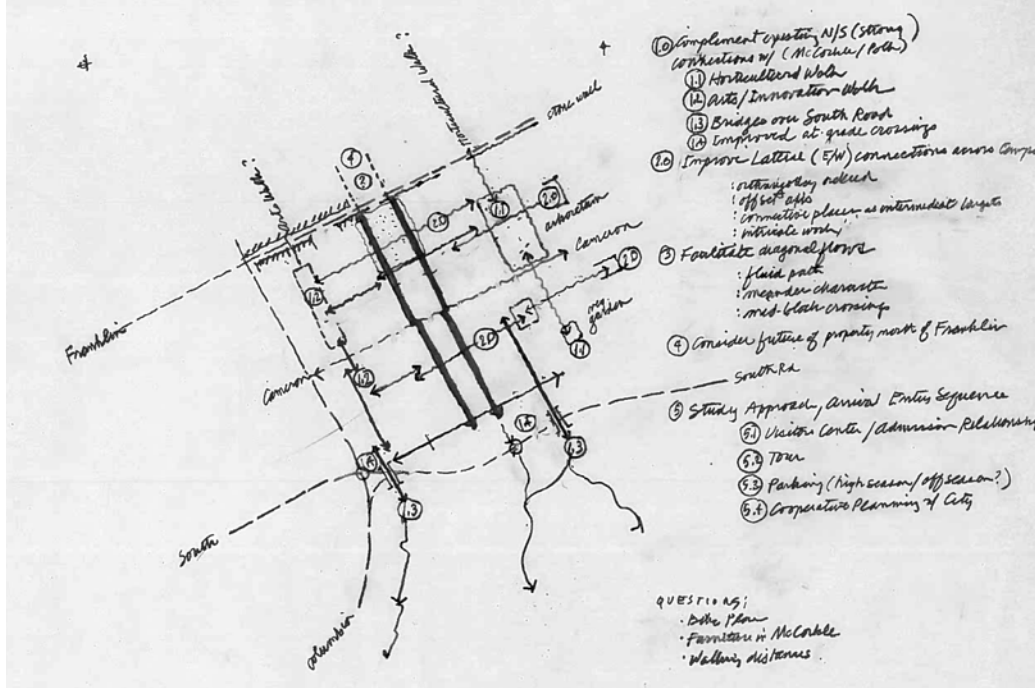 1.0 Complement existing N/S (strong)
connections w/ (McCorkle/Polk)
1.1 Horticultural Walk
1.2 Arts/Innovation Walk
1.3 Bridges over South Road
1.4 Improved at-grade crossings
2.0 Improve Lateral (E/W) connections across Campu
: orthogonally ordered
: offset axis
: connective places as intermediate targets
: intricate work
3 Facilitate diagonal flows
: fluid path
: meander character
: mid-block crossings
4 Consider future of property north of Franklin
5 Study Approach, Arrival Entry Sequence
5.1 Visitors Center/Admission Relationship
5.2 Tour
5.3 Parking (high season/off season?)
5.4 Cooperative Planning w/ City
QUESTIONS:
· Bike Plan
· Furniture in McCorkle
· Walking distances
horticultural walk ?
stone wall
arts walk ?
4
2
2.0
1.1
2.0
arboretum
Cameron
2.0
1.2
Franklin
garden
2.0
1.1
Cameron
1.2
South Rd
1.4
1.4
1.3
1.3
South
Columbia